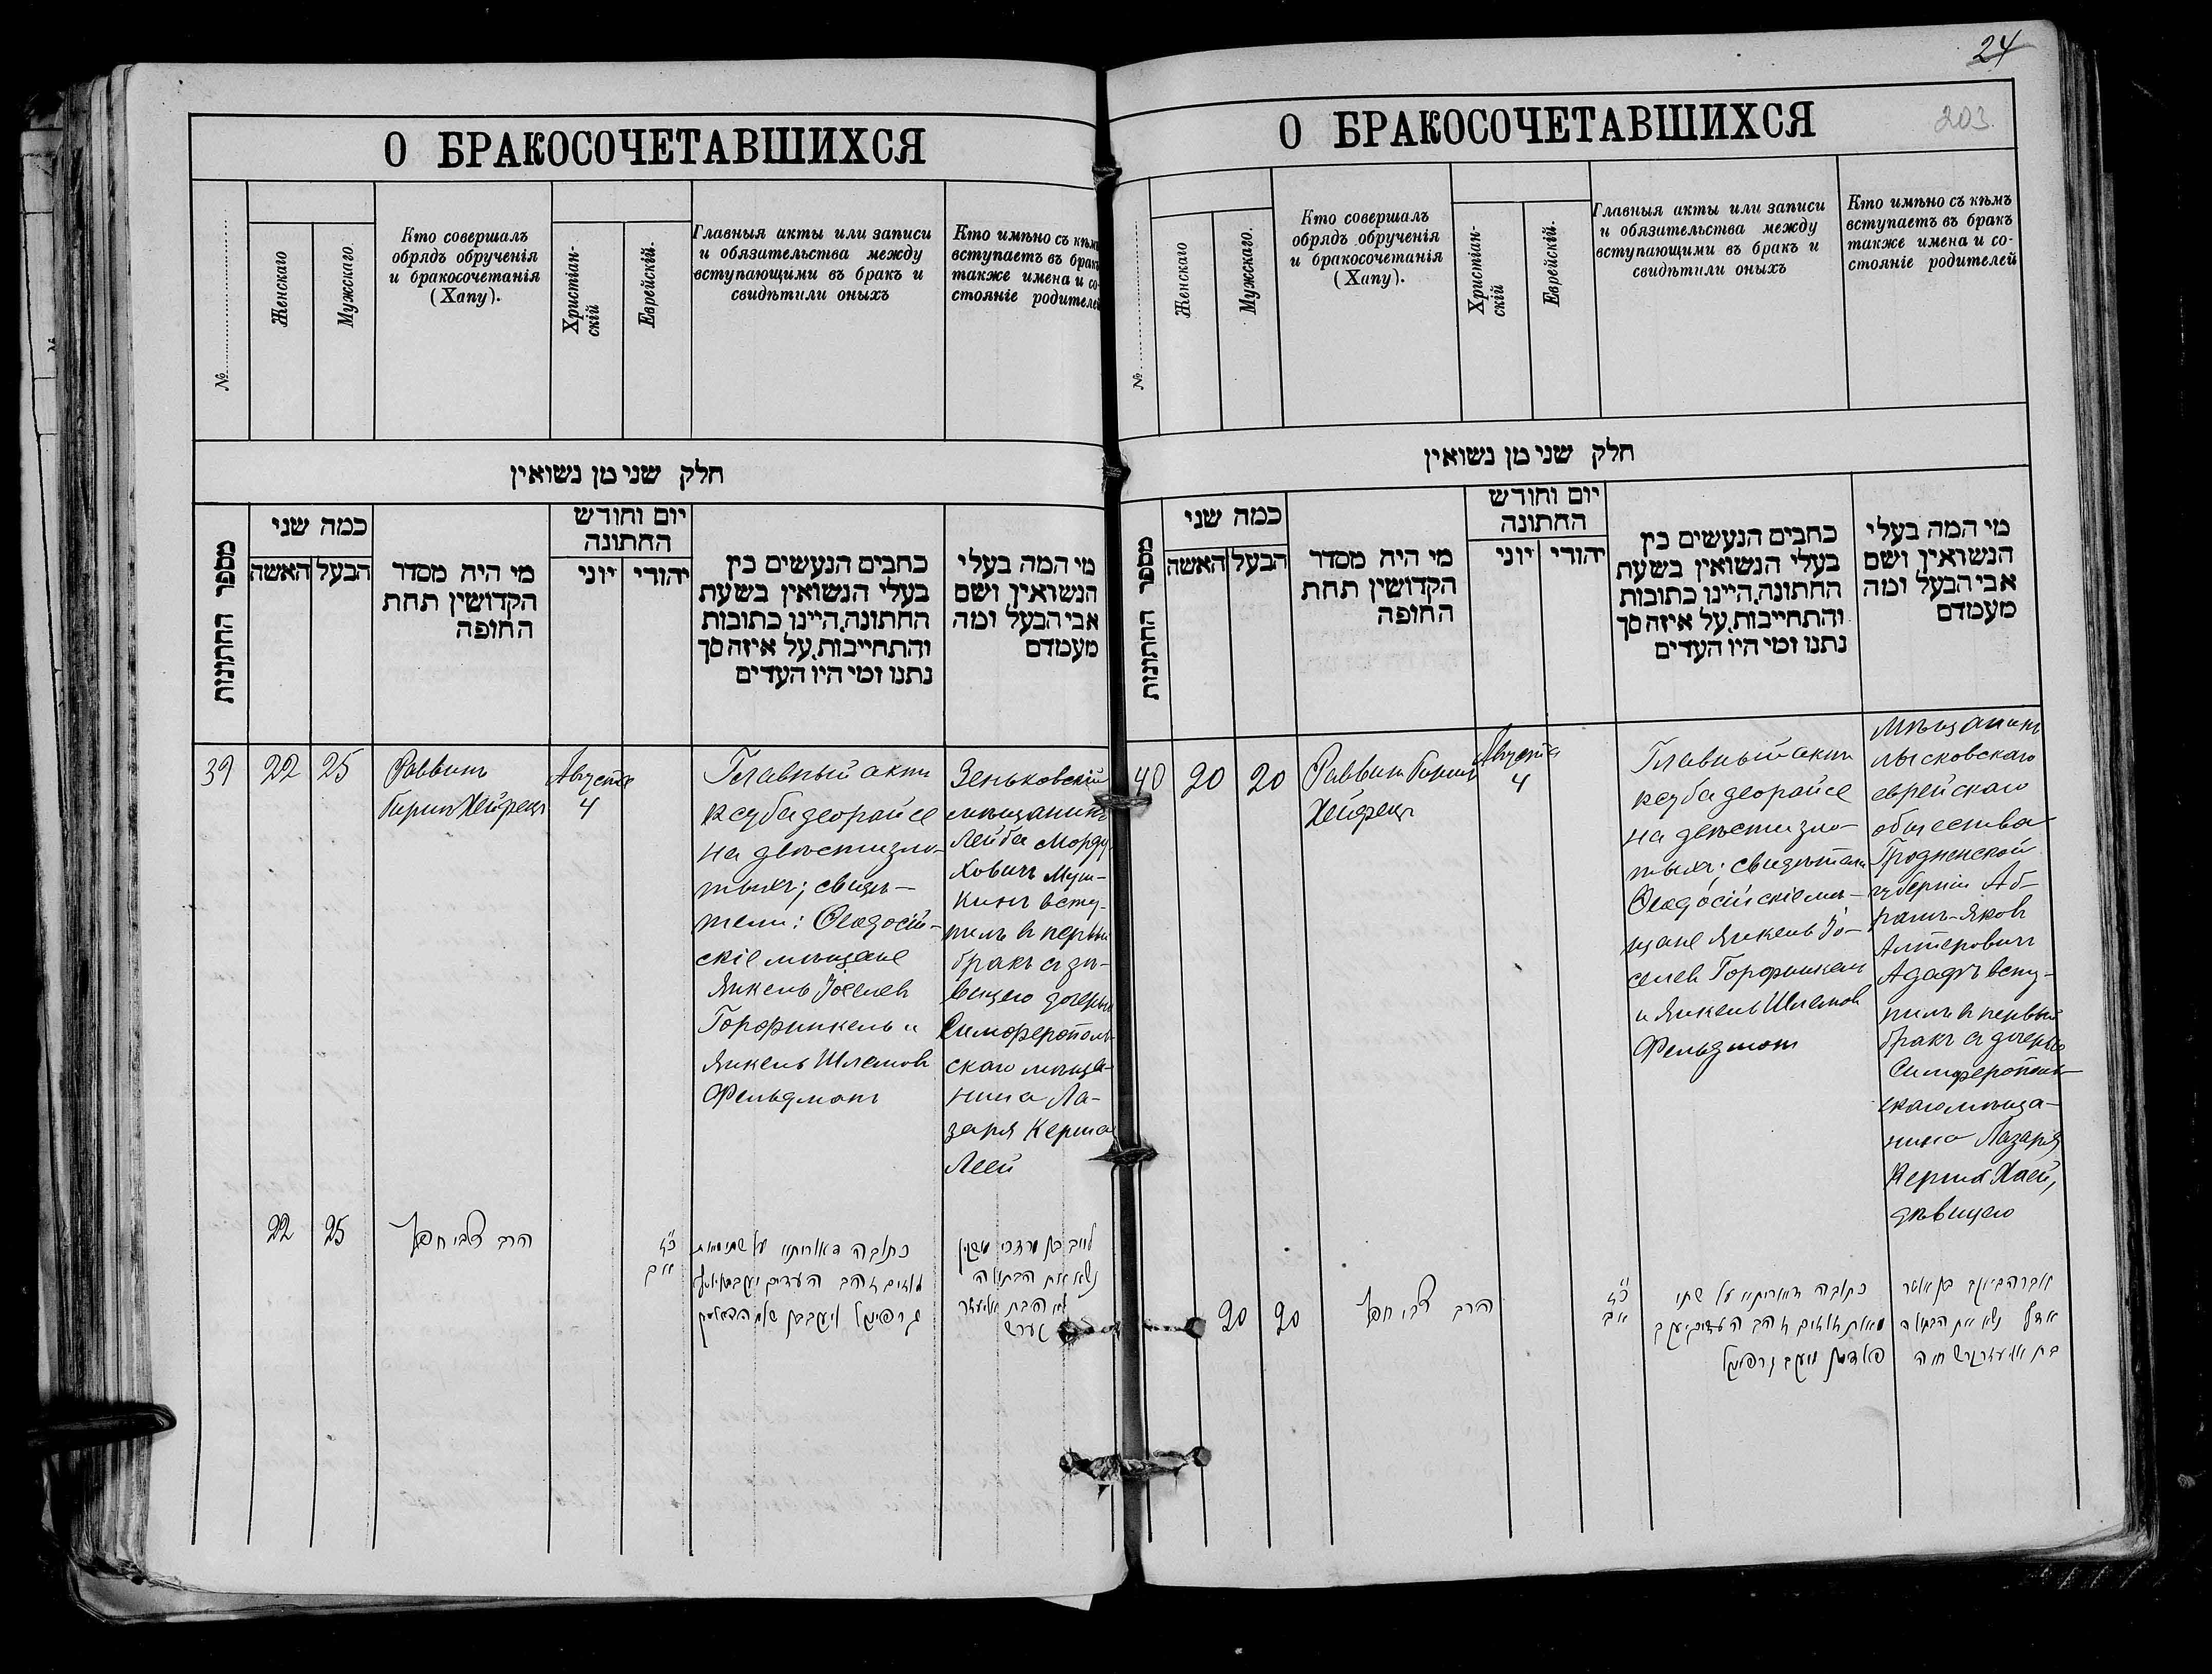 О БРАКОСОЧЕТАВШИХСЯ
№
Женскаго
Мужскаго.
Кто совершалъ
обрядъ обрученія
и бракосочетанія
(Хапу).
Христіан-
скій
Еврейскій.
Главныя акты или записи
и обязательства между
вступающими въ бракъ и
свидѣтили оныхъ
Кто имѣно съ кѣмъ
вступаетъ въ бракъ
также имена и со-
стояніе родителей
חלק שני מן נשואין
מספר החתונות
כמה שני
הבעל האשה
מי היה מסדר
הקדושין תחת
החופה
יום וחודש
החתונה
יהודי יוני
כתבים הנעשים בין
בעלי הנשואין בשעת
החתונה, היינו כתובות
והתחייבות, על איזה סך
נתנו ומי היו העדים
מי המה בעלי
הנשואין ושם
אבי הבעל ומה
מעמדם
39
22
25
Раввинъ
Хейфецъ
Августа
4
Главный актъ
ксуба деорайсе
на двѣсти зло-
тыхъ; свидѣ-
тели: Ѳеодосій-
скіе мѣщане
Янкель Іоселев
Горфинкель и
Янкель Шлемов
Фельдманъ
Зеньковскій
мѣщанинъ
Лейба Морду-
ховичъ Муш-
кинъ всту-
пилъ в первый
бракъ с дѣ-
вицею дочерью
Симферополь-
скаго мѣща-
нина Ла-
заря Керша
Леей
22
25
הרב צבי חפץ
כ״ז
אב
כתובה דאורייתא על שתי מאות
זהובים
24
203.
О БРАКОСОЧЕТАВШИХСЯ
№
Женскаго
Мужскаго.
Кто совершалъ
обрядъ обрученія
и бракосочетанія
(Хапу).
Христіан-
скій
Еврейскій.
Главныя акты или записи
и обязательства между
вступающими въ бракъ и
свидѣтили оныхъ
Кто имѣно съ кѣмъ
вступаетъ въ бракъ
также имена и со-
стояніе родителей
חלק שני מן נשואין
מספר החתונות
כמה שני
הבעל האשה
מי היה מסדר
הקדושין תחת
החופה
יום וחודש
החתונה
יהודי יוני
כתבים הנעשים בין
בעלי הנשואין בשעת
החתונה, היינו כתובות
והתחייבות, על איזה סך
נתנו ומי היו העדים
מי המה בעלי
הנשואין ושם
אבי הבעל ומה
מעמדם
40
20
20
Раввинъ
Хейфецъ
Августа
4
Главный актъ
ксуба деорайсе
на двѣсти зло-
тыхъ; свидѣтели
Ѳеодосійскіе мѣ-
щане Янкель Іо-
селев Горфинкель
и Янкель Шлемов
Фельдманъ
Мѣщанинъ
лысковскаго
еврейскаго
общества
Гродненской
губерніи Аб-
рамъ-Яковъ
Алтеровичъ
Адафъ всту-
пилъ в первый
бракъ с дочерью
Симферополь-
скаго мѣща-
нина Лазаря
Керша Хаей,
дѣвицею
20
20
הרב צבי חפץ
כ״ז
אב
כתובה דאורייתא על שתי